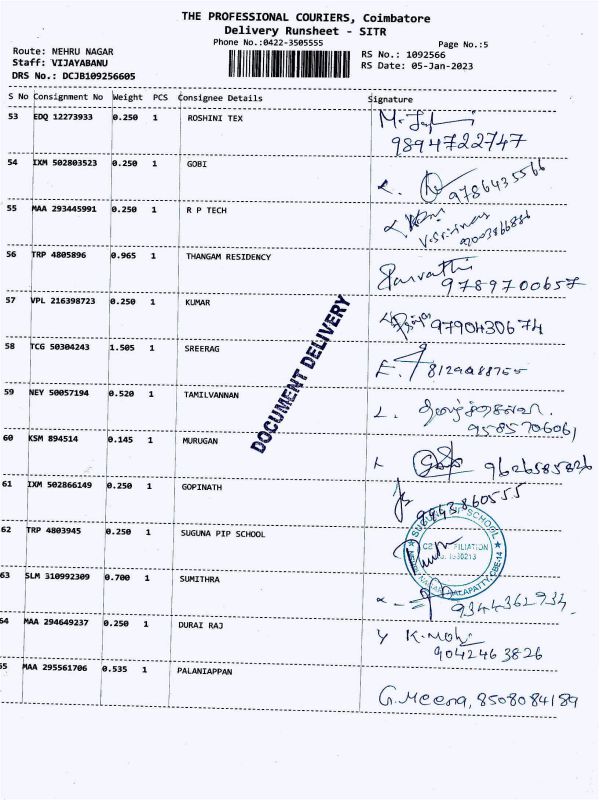 THE PROFESSIONAL COURIERS, Coimbatore
Delivery Runsheet - SITR
Phone No.:0422-3505555
Page No.:5
Route: NEHRU NAGAR
RS No.: 1092566
Staff: VIJAYABANU
RS Date: 05-Jan-2023
DRS No.: DCJB109256605
S No Consignment No Weight PCS Consignee Details Signature
53 EDQ 12273933 0.250 1 ROSHINI TEX
9894722747
54 IXM 502803523 0.250 1 GOBI
9786435566
55 MAA 293445991 0.250 1 R P TECH
56 TRP 4805896 0.965 1 THANGAM RESIDENCY
Parvathi
9789700657
57 VPL 216398723 0.250 1 KUMAR
9790430674
58 TCG 50304243 1.505 1 SREERAG
59 NEY 50057194 0.520 1 TAMILVANNAN
9585706061
60 KSM 894514 0.145 1 MURUGAN
9626585826
61 IXM 502866149 0.250 1 GOPINATH
9943860555
62 TRP 4803945 0.250 1 SUGUNA PIP SCHOOL
63 SLM 310992309 0.700 1 SUMITHRA
9344362934
64 MAA 294649237 0.250 1 DURAI RAJ
9042463826
65 MAA 295561706 0.535 1 PALANIAPPAN
G. Meena, 8508084189
DOCUMENT DELIVERY
SUGUNA PIP SCHOOL